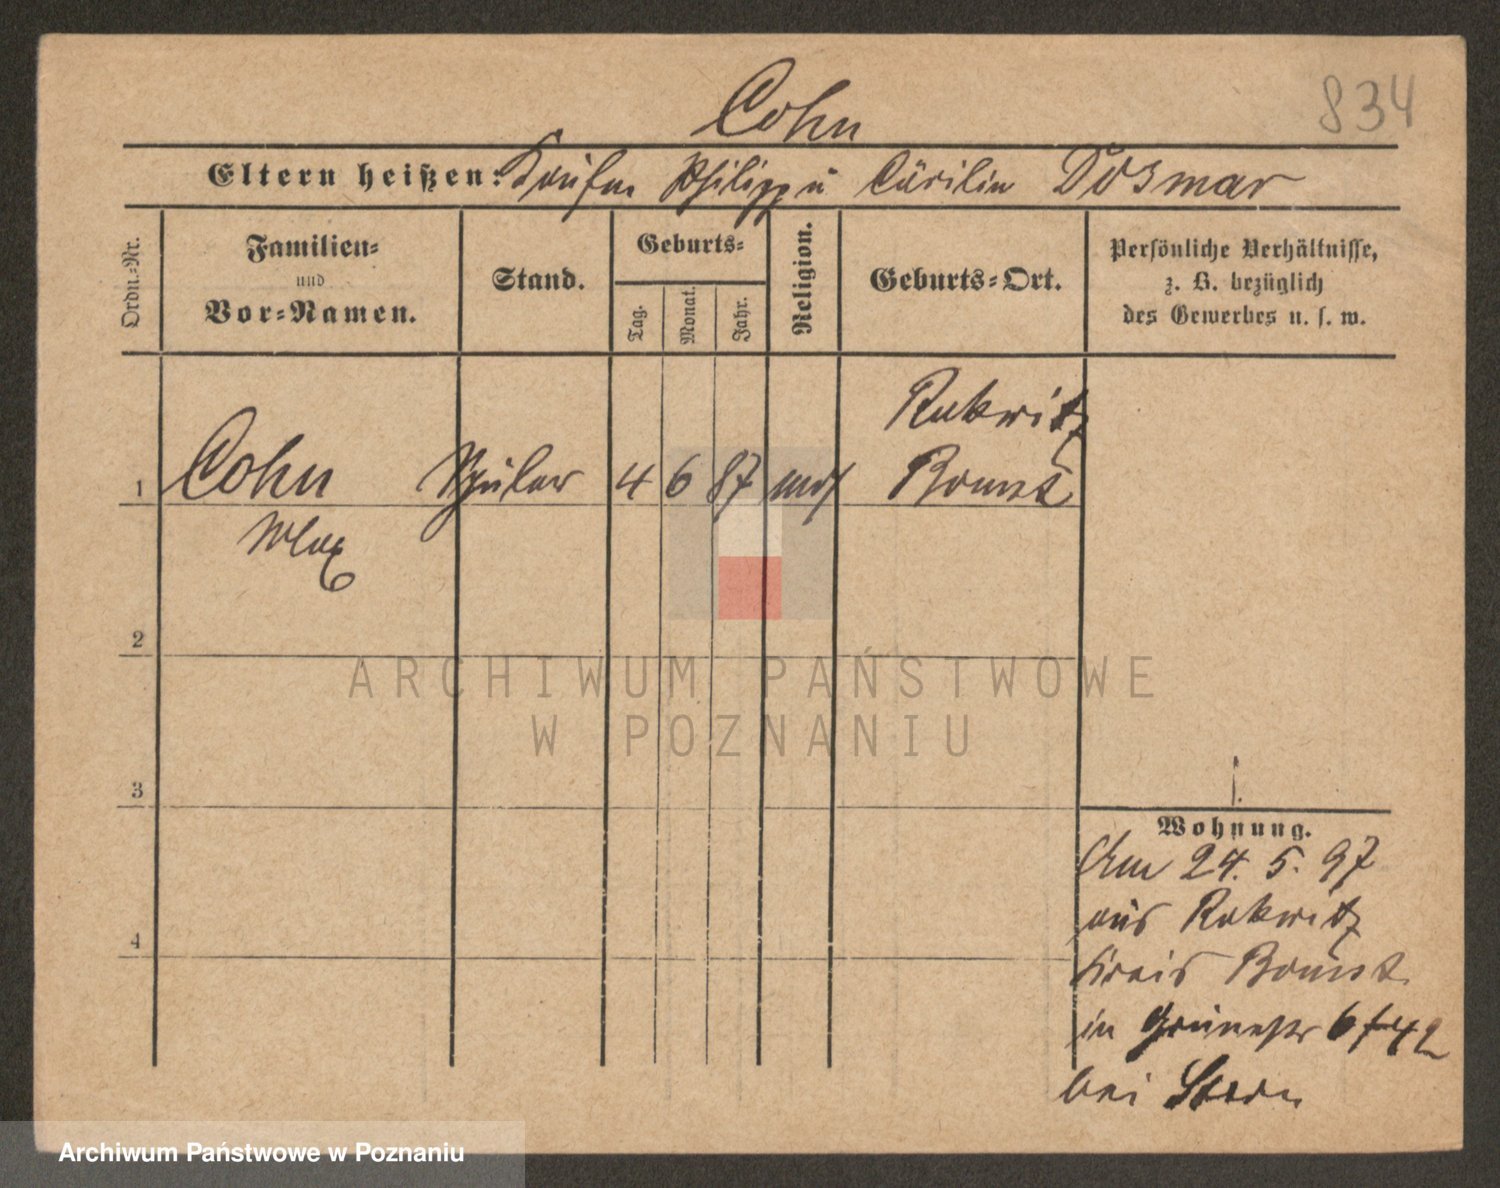 834
Cohn
Eltern heißen: Kaufm Philipp u Cäcilie Dosmar
Ordn.-Nr.
Familien-
und
Vor-Namen.
Stand.
Geburts-
Tag.
Monat.
Jahr.
Religion.
Geburts-Ort.
Persönliche Verhältnisse,
z. B. bezüglich
des Gewerbes u. s. w.
Rakwitz
1 Cohn Schüler 4 6 87 mos Bomst
Max
2
3
4
Wohnung.
Am 24. 5. 97
aus Rakwitz
Kreis Bomst
in Grünestr 6
bei Stern
ARCHIWUM PAŃSTWOWE
W POZNANIU
Archiwum Państwowe w Poznaniu